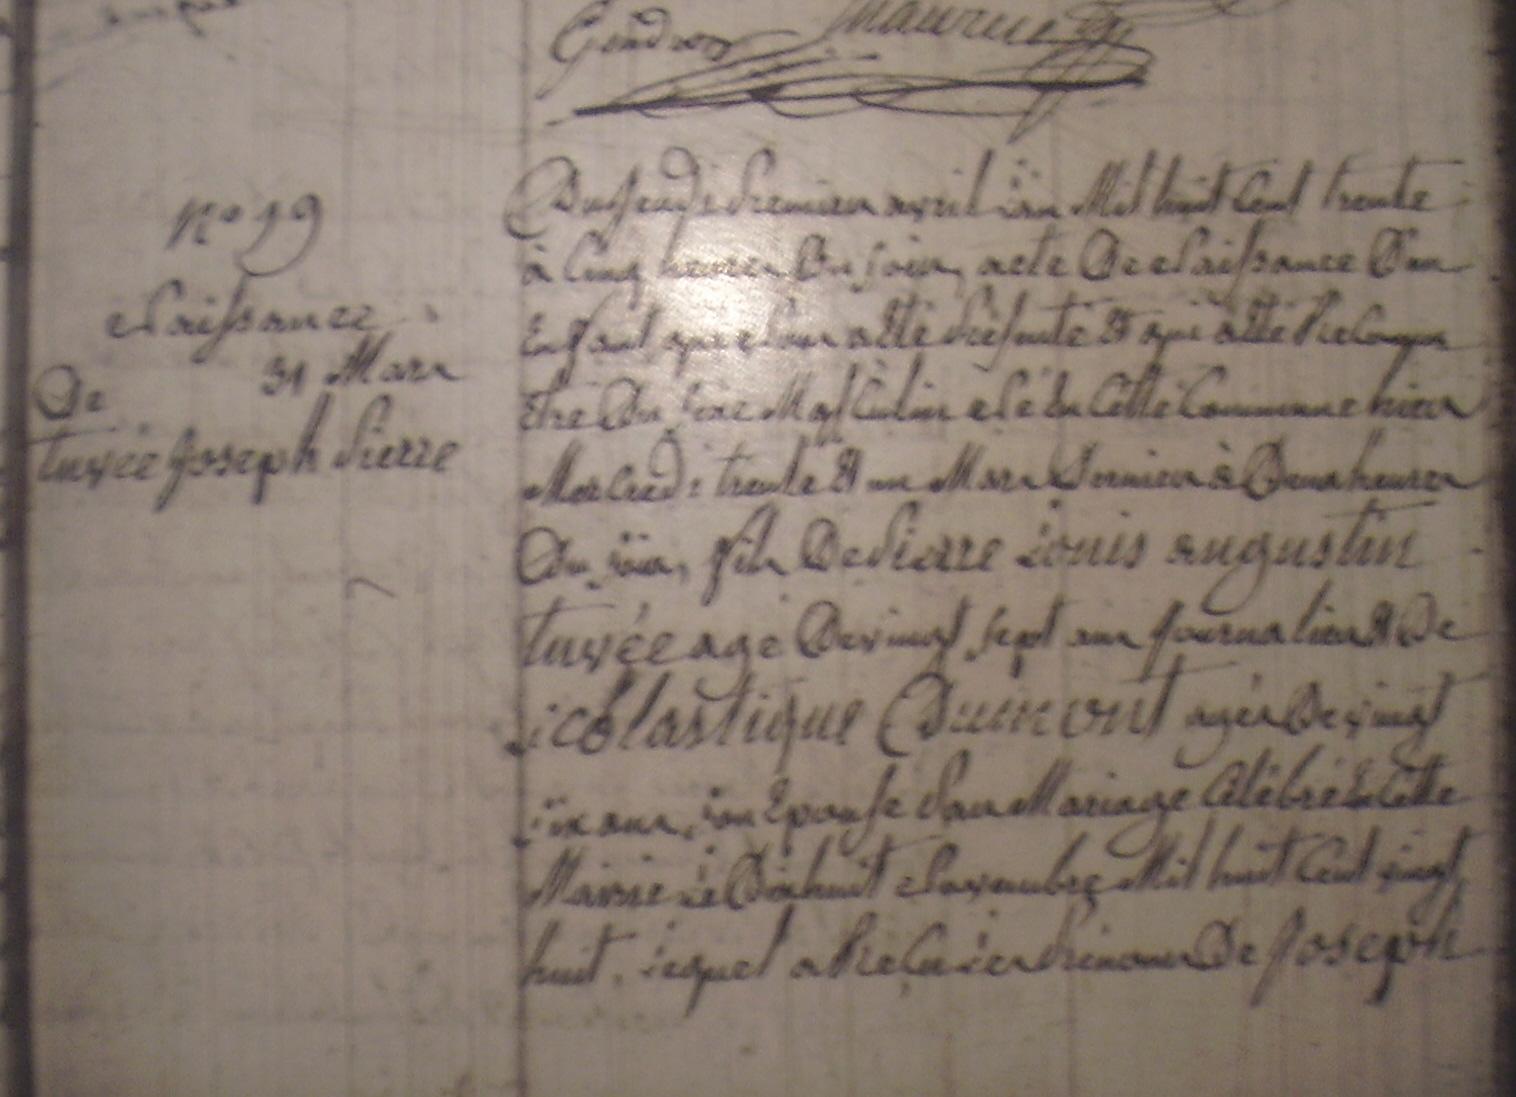 Gendron
n° 19
Naissance
31 Mars
De
Tuvée Joseph Pierre
Du Jeudi Premier avril an Mil huit Cent trente
à Cinq heures Du soir, acte De Naissance D'un
Enfant que l'on a été présenté & qui a été Reconnu
être Du sexe Masculin Né En Cette Commune hier
Mercredi trente & un Mars Dernier à Deux heures
Du soir, fils De Pierre Louis augustin
Tuvée age De vingt sept ans Journalier & De
scolastique Dumont agée De vingt
six ans, son Epouse Par Mariage Célébré En Cette
Mairie Le Dix huit Novembre Mil huit Cent vingt
huit. Lequel a Reçu Les Prénoms De Joseph